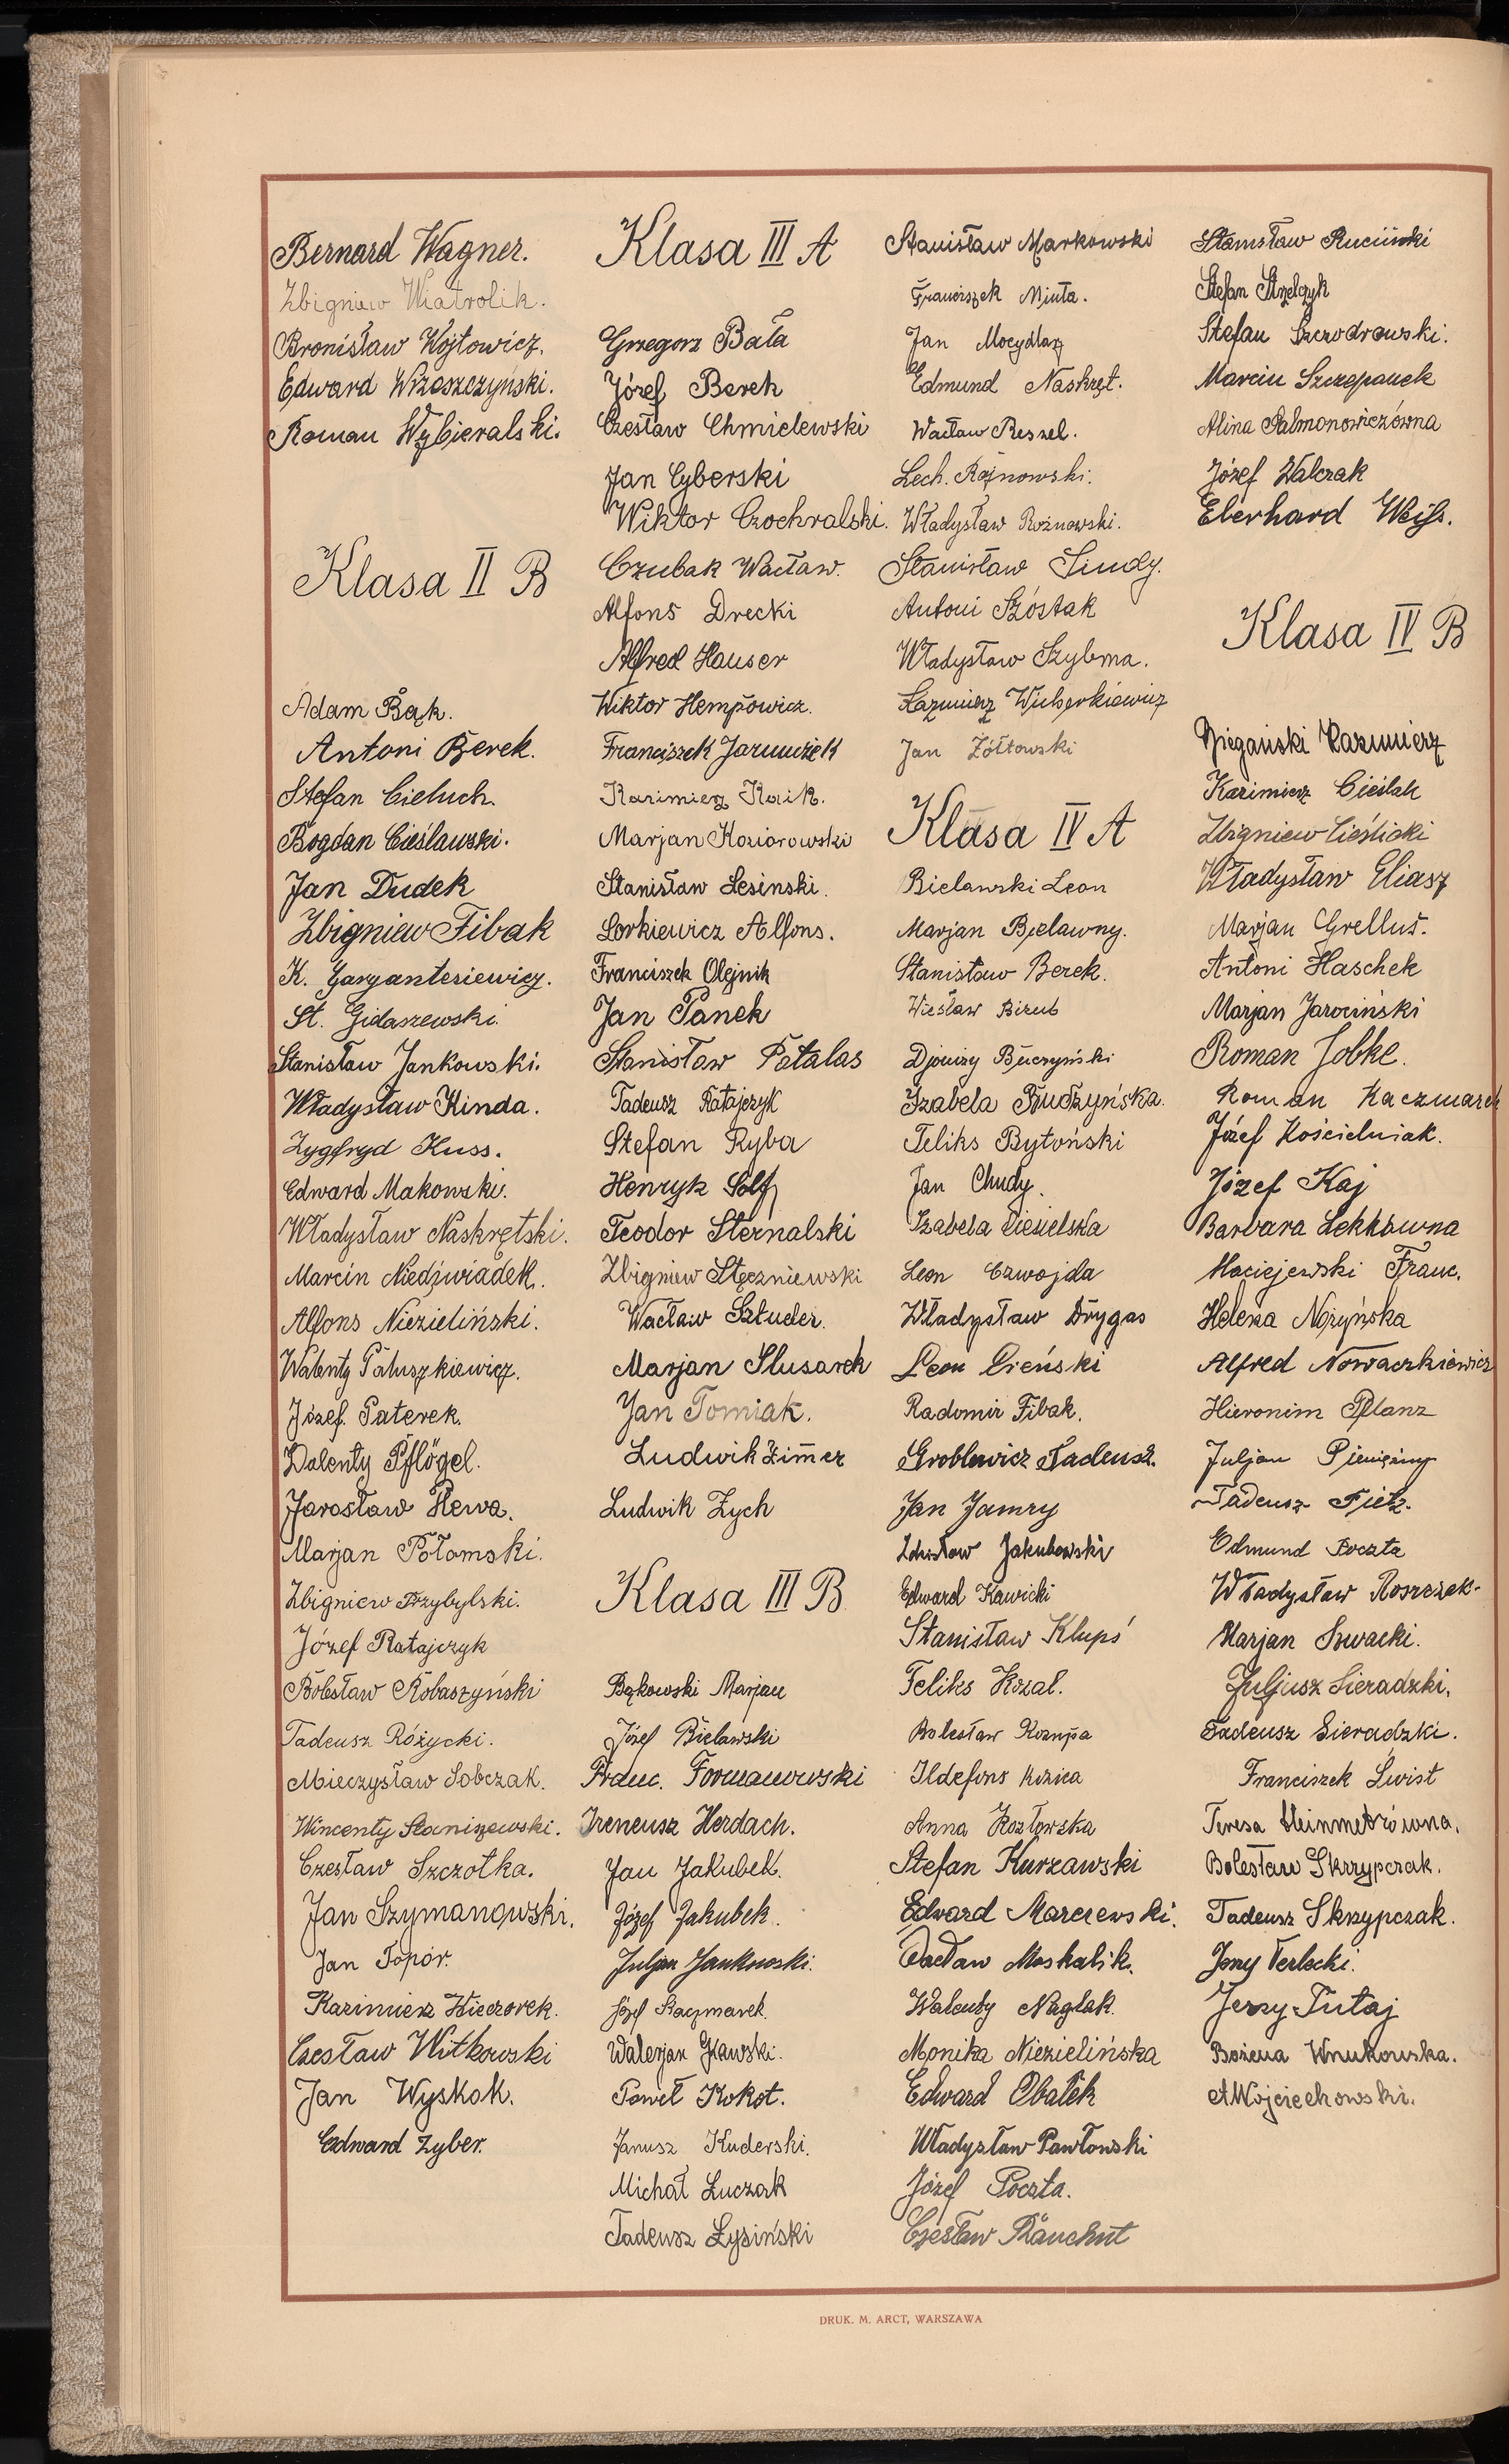 Bernard Wagner.
Zbigniew Wiatrolik.
Bronisław Wojtowicz.
Edward Wrzeszczyński.
Roman Wybieralski.
Klasa II B
Adam Bąk.
Antoni Berek.
Stefan Cieluch.
Bogdan Cieślawski.
Jan Dudek
Zbigniew Fibak
K. Gargantesiewicz.
St. Gidaszewski.
Stanisław Jankowski.
Władysław Kinda.
Zygfryd Kuss.
Edward Makowski.
Władysław Naskrętski.
Marcin Niedźwiadek.
Alfons Niezieliński.
Walenty Paluszkiewicz.
Józef Paterek.
Walenty Pflögel.
Jarosław Plewa.
Marjan Połomski.
Zbigniew Przybylski.
Józef Ratajczyk
Bolesław Robaszyński
Tadeusz Różycki.
Mieczysław Sobczak.
Wincenty Staniszewski.
Czesław Szczotka.
Jan Szymanowski.
Jan Topór.
Kazimierz Wieczorek.
Czesław Witkowski
Jan Wyskok.
Edward Zyber.
Klasa III A
Grzegorz Bała
Józef Berek
Czesław Chmielewski
Jan Cyberski
Wiktor Czochralski.
Czubak Wacław.
Alfons Drecki
Alfred Hauser
Wiktor Hempowicz.
Franciszek Jarmużek
Kazimierz Kaik.
Marjan Koziorowski
Stanisław Lesinski.
Lorkiewicz Alfons.
Franciszek Olejnik
Jan Panek
Stanisław Patalas
Tadeusz Ratajczyk
Stefan Ryba
Henryk Solf
Teodor Sternalski
Zbigniew Stęczniewski
Wacław Sztuder.
Marjan Slusarek
Jan Tomiak.
Ludwik Zimer
Ludwik Zych
Klasa III B
Bąkowski Marjan
Józef Bielawski
Franc. Formanowski
Ireneusz Herdach.
Jan Jakubek.
Józef Jakubek.
Juljan Jankowski.
Józef Kaczmarek.
Walerjan Kawski.
Paweł Kokot.
Janusz Kuderski.
Michał Łuczak
Tadeusz Łysiński
Stanisław Markowski
Franciszek Minta.
Jan Mocydlarz
Edmund Naskręt.
Wacław Ressel.
Lech. Rożnowski.
Władysław Rożnowski.
Stanisław Siudy.
Antoni Szóstak
Władysław Szybma.
Kazimierz Wicherkiewicz
Jan Żółtowski
Klasa IV A
Bielawski Leon
Marjan Bielawny.
Stanisław Berek.
Wiesław Bizub
Djonizy Buczyński
Izabela Budzyńska.
Feliks Bytoński
Jan Chudy.
Izabela Cieielska
Leon Czwojda
Władysław Drygas
Leon Cieński
Radomir Fibak.
Groblewicz Tadeusz.
Jan Jamry
Zdzisław Jakubowski
Edward Kawicki
Stanisław Klupś
Feliks Kozal.
Bolesław Kozupa
Ildefons Kozica
Anna Kozłowska
Stefan Kurzawski
Edward Marcrewski.
Wacław Moskalik.
Walenty Naglak.
Monika Niezielińska
Edward Obałek
Władysław Pawłowski
Józef Poczta.
Czesław Rauchut
Stanisław Ruciński
Stefan Strzelczyk
Stefan Szczodrowski.
Marcin Szczepanek
Alina Salmonowiczówna
Józef Walczak
Eberhard Weiß.
Klasa IV B
Kazimierz
Kazimierz Cieślak
Zbigniew Cieślicki
Władysław Eliasz
Marjan Grellus.
Antoni Haschek
Marjan Jarociński
Roman Jobke.
Roman Kaczmarek
Józef Kościelniak.
Józef Kaj
Barbara Lekkówna
Maciejewski Franc.
Helena Nożyńska
Alfred Nowaczkiewicz
Hieronim Pflanz
Juljan Pieniężny
Tadeusz Pietz.
Edmund Poczta
Władysław Roszczak.
Marjan Siwacki.
Juljusz Sieradzki,
Tadeusz Sieradzki.
Franciszek Świst
Teresa Steinmetzówna.
Bolesław Skrzypczak.
Tadeusz Skrzypczak.
Jerzy Terlecki.
Jerzy Tutaj
Bożena Wnukowska.
A Wojciechowski.
DRUK. M. ARCT, WARSZAWA